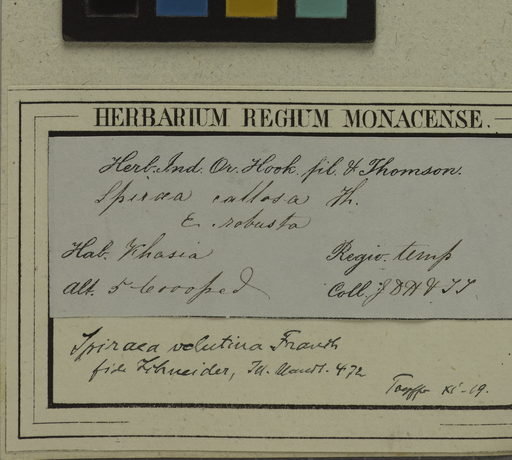 HERBARIUM REGIUM MONACENSE.
Herb. Ind. Or. Hook. fil. & Thomson.
Spiraea callosa Th.
robusta
Hab. Khasia Regio. temp
Alt. 5-6000 ped Coll. J D H & T T
Spiraea velutina Franch
fide Schneider, Ill. Handb. 472
XI-19.